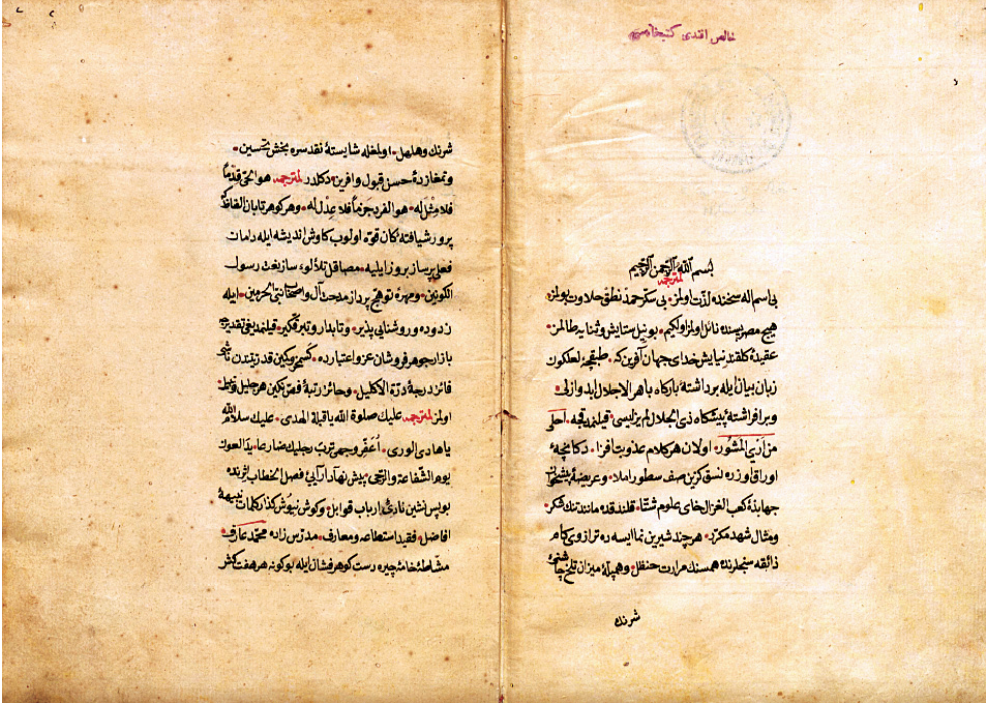 خالص افندی کتبخانه سی
بسم الله الرحمن الرحیم
لمترجمه
بی اسم اله سخنده لذت اولمز • بی سکر حمد نطق حلاوت بولمز •
هیچ مصر پسنده نائل اولمز اولکیم • بو نیل ستایش و ثنایه طالمز •
عقیدهٔ کلقند نیایش خدای جهان آفرین که • طبقچهٔ لعلکون
زبان بیان ایله برداشتهٔ بارکاه باهر الاجلال ابد و ازلی •
و برافراشتهٔ پیشکاه ذی الجلال لم یزلیسی • قیلنمدقجه • احلی
من اری المشور • اولان هر کلام عذوبت افزا • دکانچهٔ
اوراق اوزره نسق کزین صف سطور املا • و عریضهٔ پیشخوان
جهابذهٔ کعب الغزال خای علوم شتا • قلندقده مانند تنك شکر •
و مثال شهد مکرر • هر چند شیرین نما ایسه ده ترازوی کام
ذائقه سنجلرنده همسنك مرارت حنظل • و همپلهٔ میزان تلخ چاشنئ
شرنك
شرنك و هلهل • اولمغله شایستهٔ نقد سره بخش تحسین •
و تمغازدهٔ حسن قبول و افرین • دکلدر لمترجمه هو الحی قدما
فلا مثل له • هو الفرد جزما فلا عدل له • و هر کوهر تابان الفاظ که
پرور شیافتهٔ کان قوه اولوب کاوش اندیشه ایله رامات
فعلی پرساز بروز ایلیه • مصاقل تلألؤ ساز نعت رسول
الکونین • و مهرهٔ توهج پرداز مدحت آل و اصحاب نبی الحرمین • ایله
زدوده و روشنایی پذیر • و تابدار و تبرقکیر • قیلنمدیغی تقدیرجه
بازار جوهر فروشان عز و اعتبارده • کمیز و مکین قدر ندن ناشی
فائز درجهٔ درة الاکلیل • و حائز رتبهٔ فص نکین هر جلیل و نبیل
اولمز لمترجمه علیك صلوة الله یا قبلة الهدی • علیك سلام الله
یا هادی الوری • اعفر وجهی ترب رجلیك ضارعا • یدالعون
یوم الشفاعة والرجی • پیش نهاد آرایئ فصل الخطاب اثرنده
بو پس نشین نادئ ارباب قوابل • و کوش نیوش کذار کلمات نبیههٔ
افاضل • فقید استطاعه و معارف • مدرس زاده محمد عارف •
مشاطهٔ خامهٔ چیره دست کوهر فشان ایله بو کونه هر هفت کش